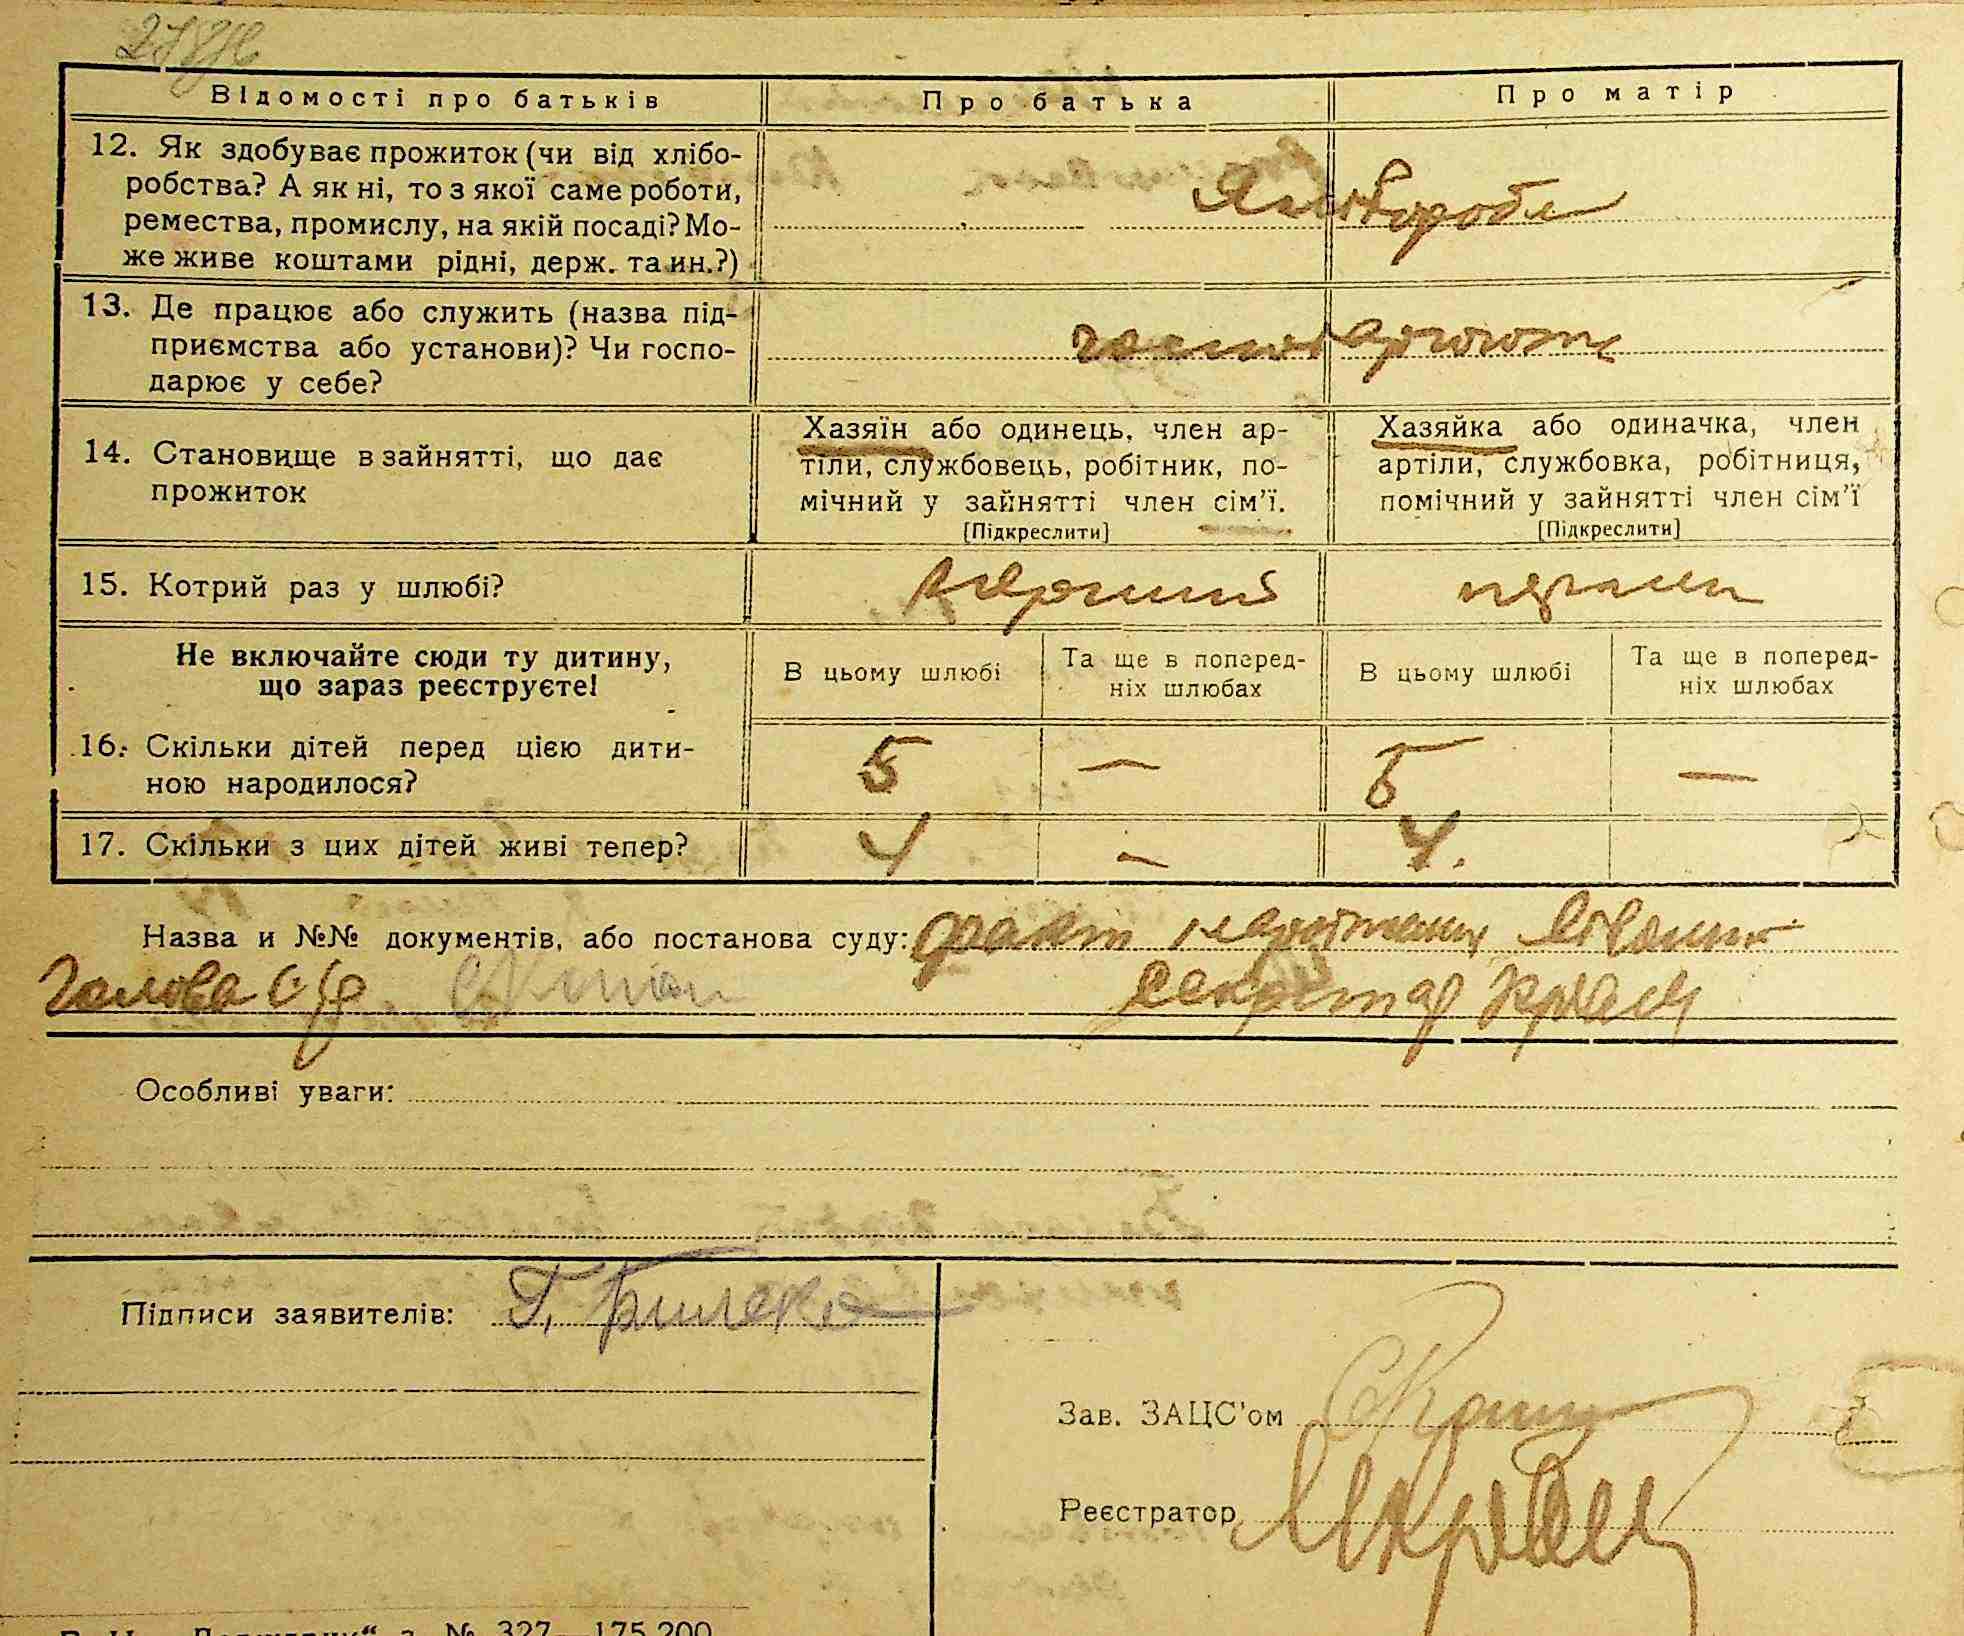 Відомості про батьків
Про батька
Про матір
12. Як здобуває прожиток (чи від хлібо-
робства? А як ні, то з якої саме роботи,
ремества, промислу, на якій посаді? Мо-
же живе коштами рідні, держ. та ин.?)
13. Де працює або служить (назва під-
приємства або установи)? Чи госпо-
дарює у себе?
14. Становище в зайнятті, що дає
прожиток
Хазяїн або одинець, член ар-
тіли, службовець, робітник, по-
мічний у зайнятті член сім'ї.
[Підкреслити]
Хазяйка або одиначка, член
артіли, службовка, робітниця,
помічний у зайнятті член сім'ї
[Підкреслити]
15. Котрий раз у шлюбі?
Не включайте сюди ту дитину,
що зараз реєструєте!
В цьому шлюбі
Та ще в поперед-
ніх шлюбах
В цьому шлюбі
Та ще в поперед-
ніх шлюбах
16. Скільки дітей перед цією дити-
ною народилося?
5 — 5 —
17. Скільки з цих дітей живі тепер?
4 — 4.
Назва и №№ документів, або постанова суду: факт
Голова с/р секретар
Особливі уваги:
Підписи заявителів: Г.
Зав. ЗАЦС'ом
Реєстратор
№ 327—175.200